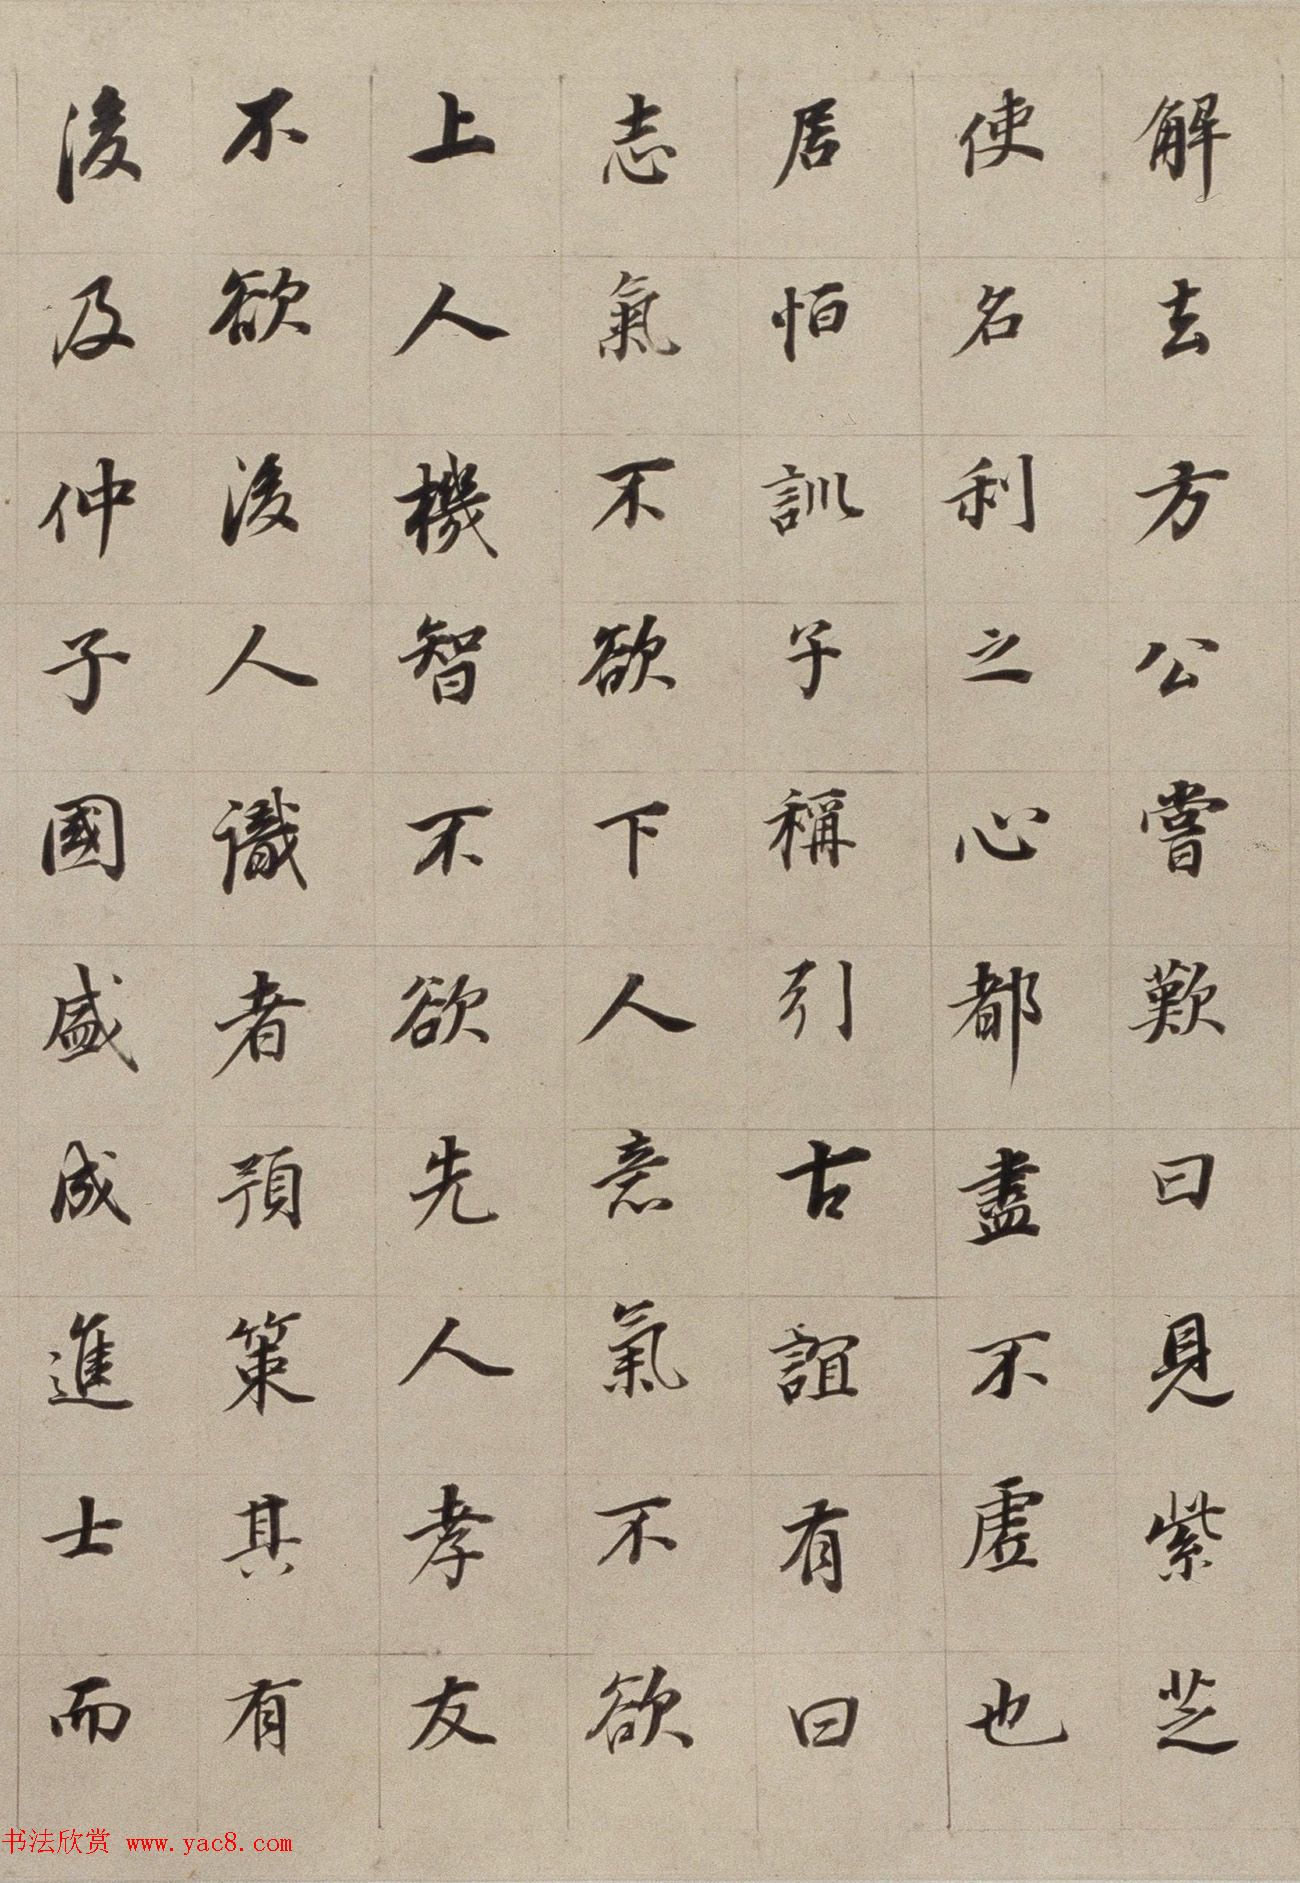 解去方公嘗歎曰見紫芝
使名利之心都盡不虛也
居恒訓子稱引古誼有曰
志氣不欲下人意氣不欲
上人機智不欲先人孝友
不欲後人識者預策其有
後及仲子國盛成進士而
书法欣赏 www.yac8.com